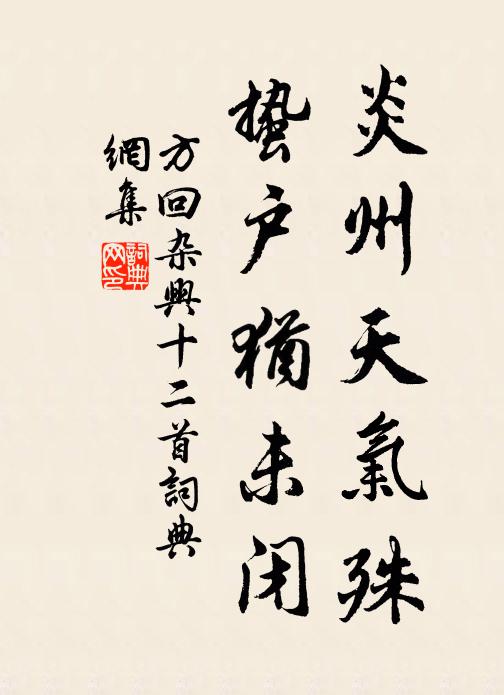 炎州天氣殊
蟄户猶未閉
方回杂興十二首詞典
網集
詞典
网印